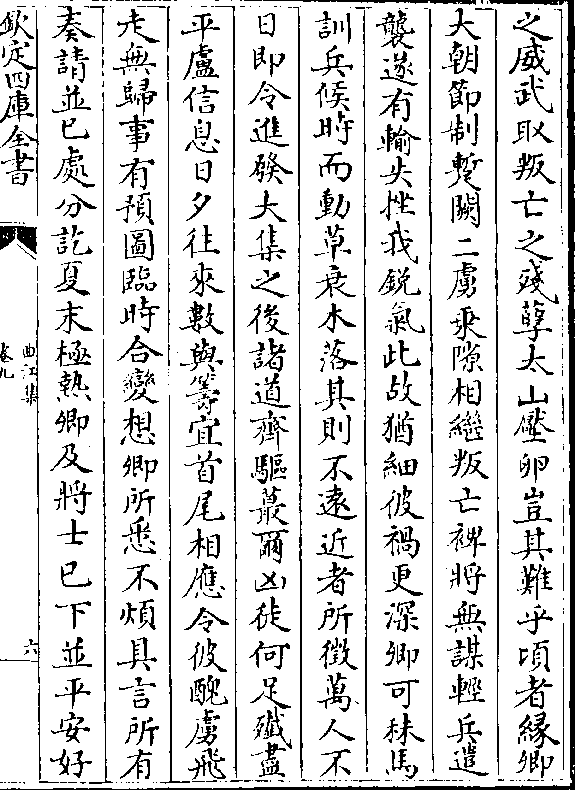 之威武取叛亡之殘孽太山壓卵豈其難乎頃者緣卿
大朝節制暫闕二虜乘隙相繼叛亡裨將無謀輕兵遣
襲遂有輸失挫我鋭氣此故猶細彼禍更深卿可秣馬
訓兵候時而動草衰木落其則不遠近者所徵萬人不
日即令進發大集之後諸道齊驅蕞爾凶徒何足殲盡
平盧信息日夕往來數與籌宜首尾相應令彼醜虜飛
走無歸事有預圖臨時合變想卿所悉不煩具言所有
奏請並已處分訖夏末極熱卿及將士已下並平安好
欽定四庫全書
曲江集
卷九
六